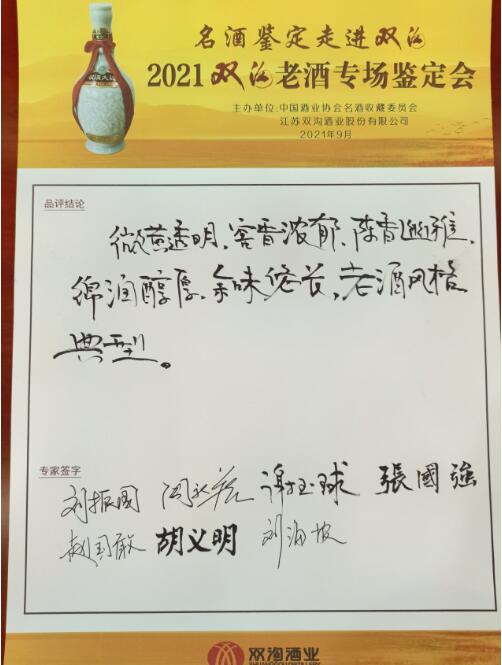 名酒鉴定走进双沟
2021双沟老酒专场鉴定会
主办单位:中国酒业协会名酒收藏委员会
江苏双沟酒业股份有限公司
2021年9月
品评结论
微黄透明、窖香浓郁、陈香幽雅、
绵润醇厚、余味悠长,老酒风格
典型。
专家签字
刘振国 谢玉球 張國強
赵国敢 胡义明 刘海坡
双沟酒业
SHUANGGOU DISTILLERY